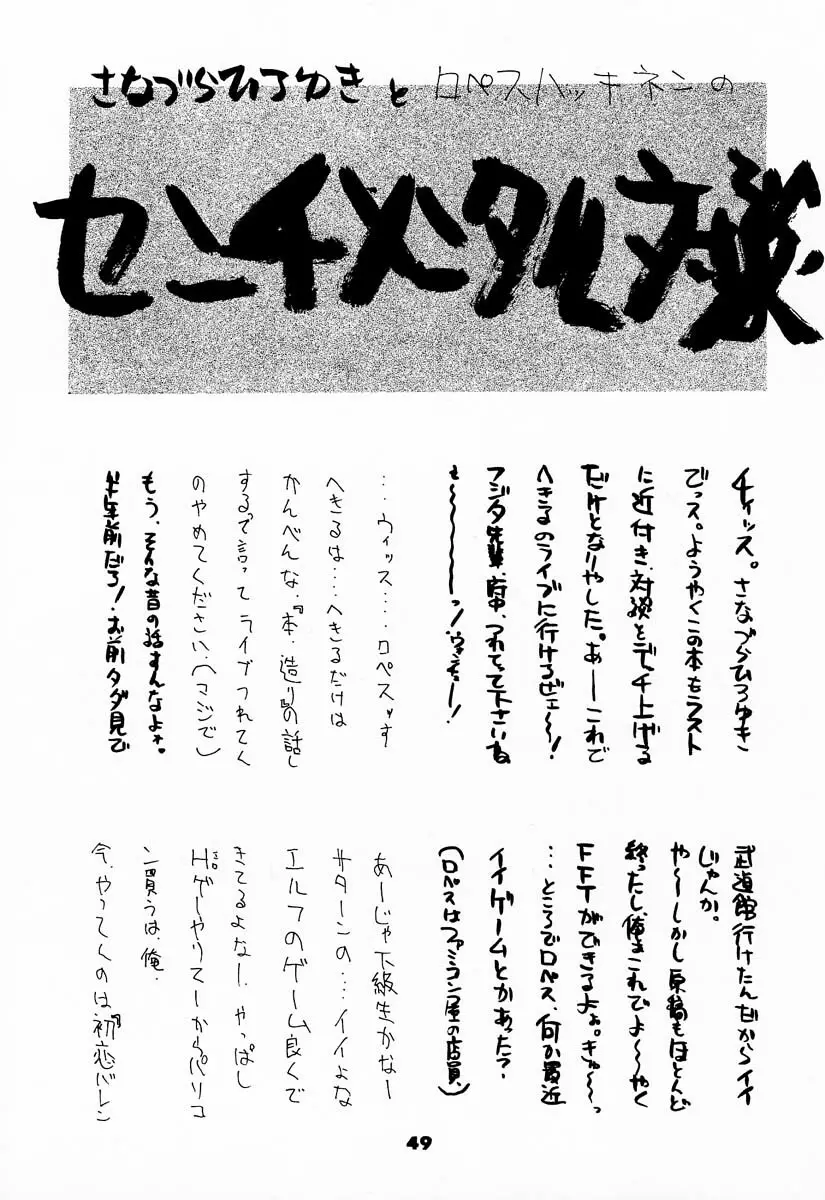 さなづらひろゆきとロペスハッキネンの
センチメンタル対談
チィッス。さなづらひろゆき
でっス。ようやくこの本もラスト
に近付き、対談とデッチ上げる
だけとなりやした。あーこれで
へきるのライブに行けるぜェ〜!
フジタ先輩、府中、つれてって下さいね
ェ〜〜〜〜っ!
…ウィッス…ロペスッす
へきるは…へきるだけは
かんべんな、『本、造り』の話し
するで言ってライブつれてく
のやめてください、(マジで)
もう、そんな昔の話すんなよォ。
半年前だろ!お前タダ見で
武道館行けたんだからイイ
じゃんか。
や〜しかし原稿もほとんど
終ったし、俺もこれでよ〜やく
FFTができるよぉ。きゅ〜〜っ
…ところでロペス、何か最近
イイゲームとかあった?
(ロペスはファミラン屋の店員)
あーじゃ下級生かなー
サターンの…イイよな
エルフのゲーム良くで
きてるよなー、やっぱし
Hゲーやりてーからパソコ
エロ
ン買うは、俺、
今、やってんのは『初恋バレン
49